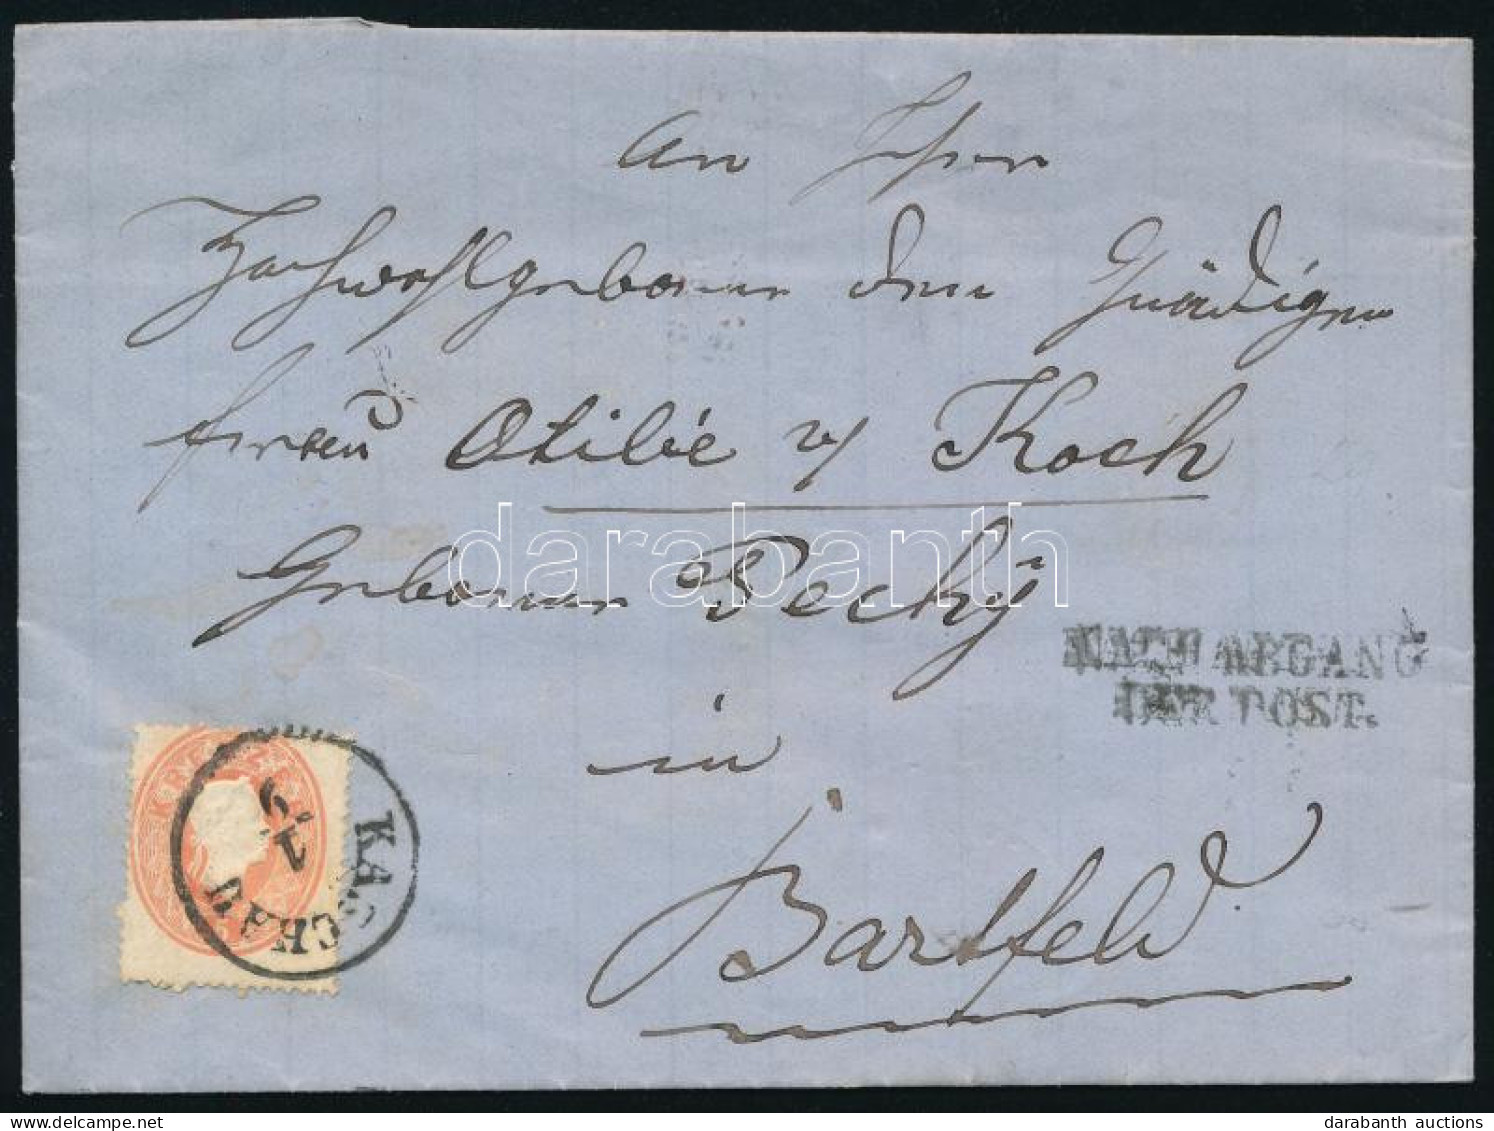 An Ihro
Hochwohlgeboren dem Gnädigen
Frau Otilié v Koch
Geboren Pechÿ
in
Bartfeld
NACH ABGANG
DER POST.
KASCHAU
KREUZER
darabanth
darabanth auctions